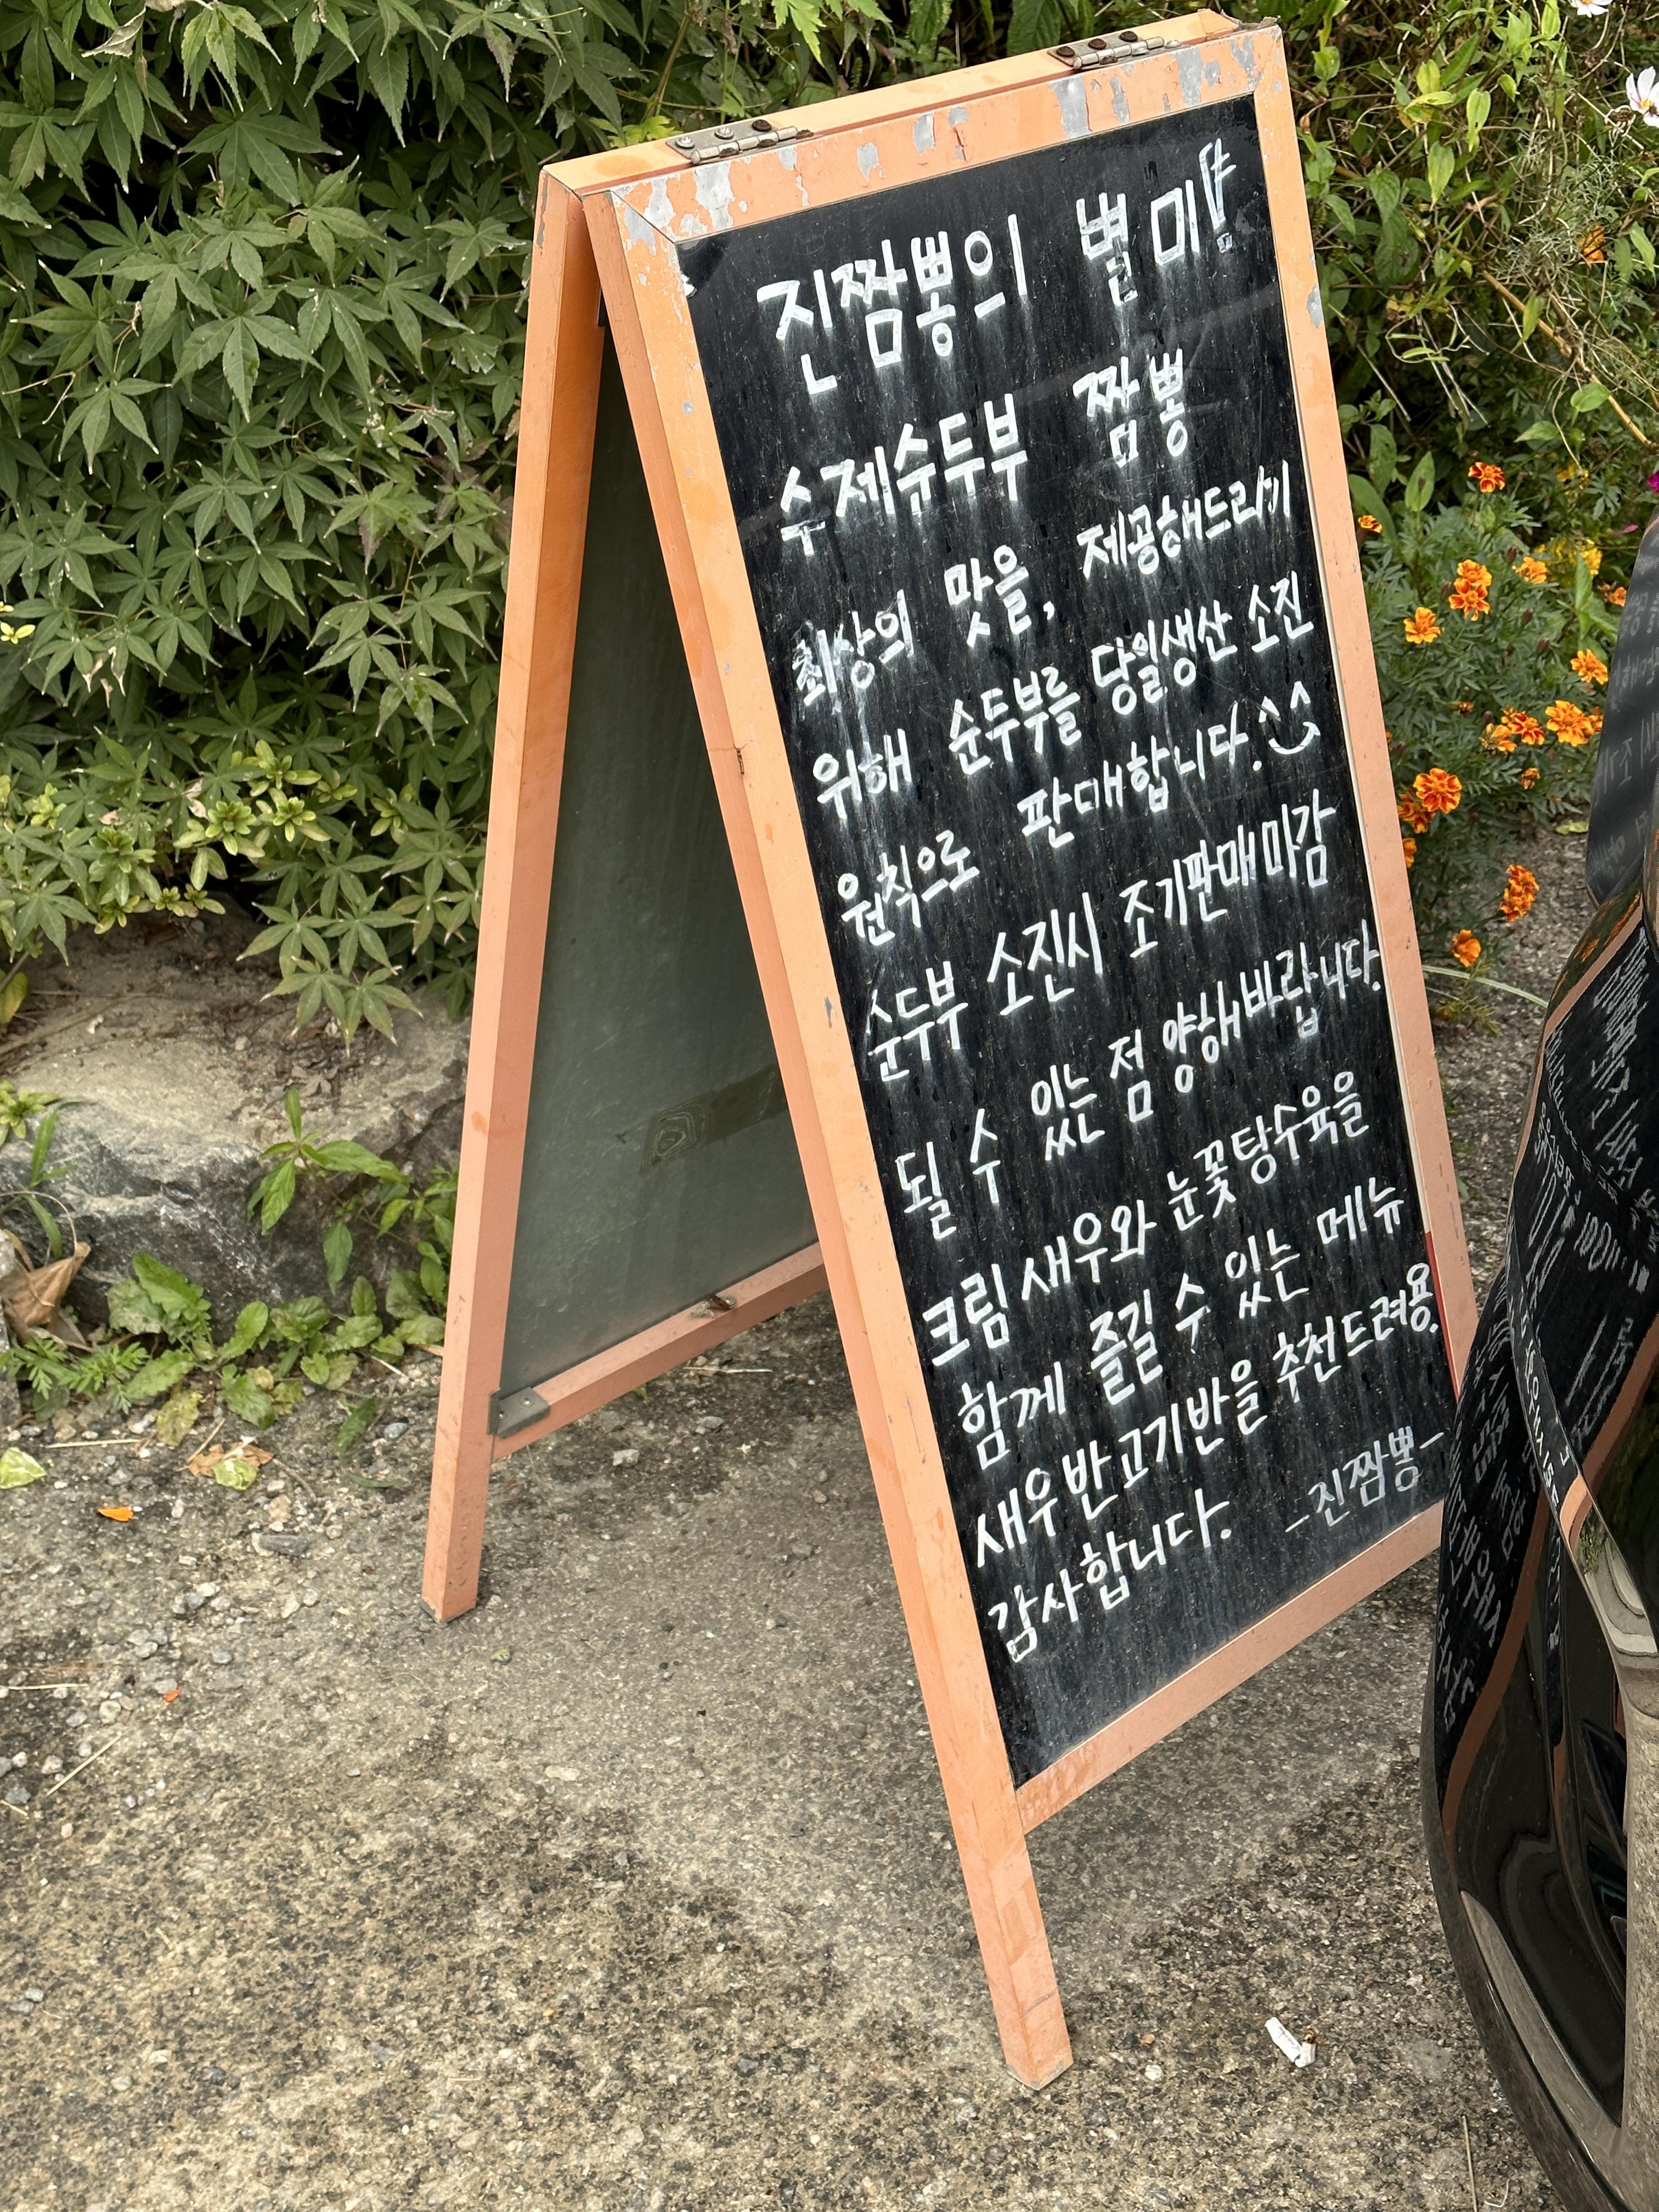 진짬뽕의 별미!
수제순두부 짬뽕
최상의 맛을, 제공해드리기
위해 순두부를 당일생산 소진
원칙으로 판매합니다.^^
순두부 소진시 조기판매마감
될 수 있는 점 양해바랍니다.
크림새우와 눈꽃탕수육을
함께 즐길 수 있는 메뉴
새우반고기반을 추천드려용.
감사합니다. -진짬뽕-